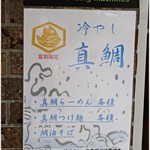 夏期限定
冷やし
真鯛
真鯛らーめん 各種
真鯛つけ麺 各種
鯛油そば